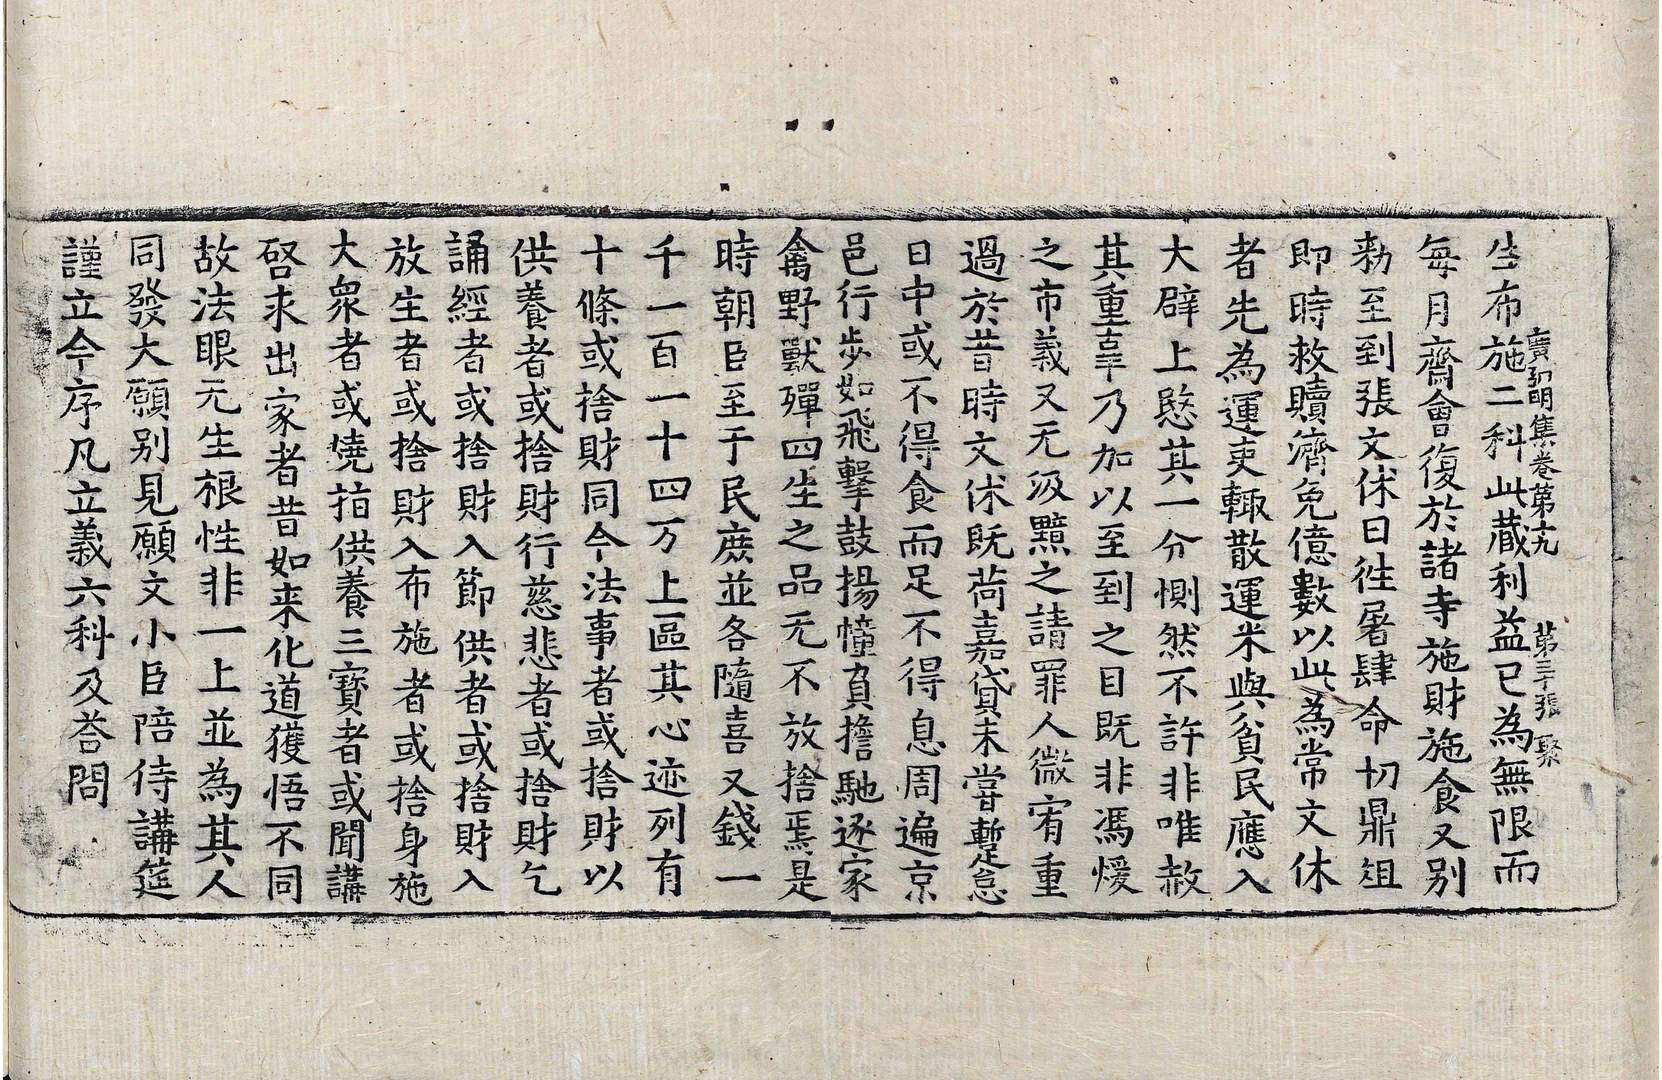 廣弘明集卷第十九 第三十張 聚
生布施二科此藏利益已為無限而
每月齋會復於諸寺施財施食又别
勑至到張文休日往屠肆命切鼎俎
即時救贖濟免億數以此為常文休
者先為運吏輙散運米與貧民應入
大辟上愍其一分惻然不許非唯赦
其重辜乃加以至到之目旣非馮煖
之市義又无汲黯之請罪人微宥重
過於昔時文休旣荷嘉貸未嘗暫怠
日中或不得食而足不得息周遍京
邑行步如飛擊鼓揚幢負擔馳逐家
禽野獸殫四生之品无不放捨焉是
時朝臣至于民庶並各隨喜又錢一
千一百一十四万上區其心迹列有
十條或捨財同今法事者或捨財以
供養者或捨財行慈悲者或捨財乞
誦經者或捨財入節供者或捨財入
放生者或捨財入布施者或捨身施
大衆者或燒指供養三寶者或聞講
啓求出家者昔如来化道獲悟不同
故法眼无生根性非一上並為其人
同發大願别見願文小臣陪侍講筵
謹立今序凡立義六科及荅問